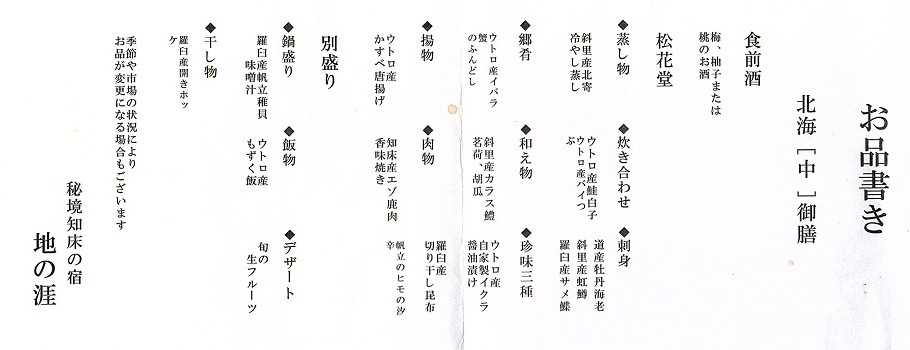 お品書き
北海［中］御膳
食前酒
梅、柚子または
桃のお酒
松花堂
◆蒸し物
斜里産北寄
冷やし蒸し
◆炊き合わせ
ウトロ産鮭白子
ウトロ産バイつ
ぶ
◆刺身
道産牡丹海老
斜里産虹鱒
羅臼産サメ鰈
◆郷肴
ウトロ産イバラ
蟹
のふんどし
◆和え物
斜里産カラス鱧
茗荷、胡瓜
◆珍味三種
ウトロ産
自家製イクラ
醤油漬け
羅臼産
切り干し昆布
帆立のヒモの汐
辛
◆揚物
ウトロ産
かすべ唐揚げ
◆肉物
知床産エゾ鹿肉
香味焼き
別盛り
◆鍋盛り
羅臼産帆立稚貝
味噌汁
◆飯物
ウトロ産
もずく飯
◆デザート
旬の
生フルーツ
◆干し物
羅臼産開きホッ
ケ
季節や市場の状況により
お品が変更になる場合もございます
秘境知床の宿
地の涯